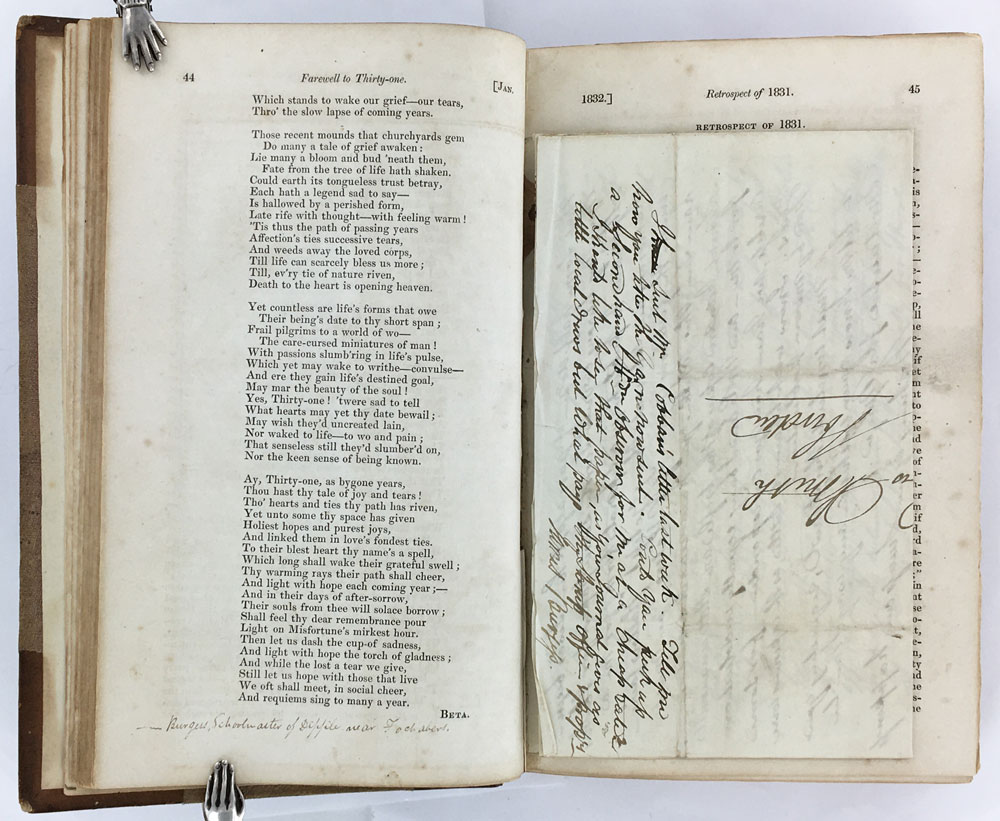 44
Farewell to Thirty-one.
[JAN.
Which stands to wake our grief—our tears,
Thro' the slow lapse of coming years.
Those recent mounds that churchyards gem
Do many a tale of grief awaken:
Lie many a bloom and bud 'neath them,
Fate from the tree of life hath shaken.
Could earth its tongueless trust betray,
Each hath a legend sad to say—
Is hallowed by a perished form,
Late rife with thought—with feeling warm!
'Tis thus the path of passing years
Affection's ties successive tears,
And weeds away the loved corps,
Till life can scarcely bless us more;
Till, ev'ry tie of nature riven,
Death to the heart is opening heaven.
Yet countless are life's forms that owe
Their being's date to thy short span;
Frail pilgrims to a world of wo—
The care-cursed miniatures of man!
With passions slumb'ring in life's pulse,
Which yet may wake to writhe—convulse—
And ere they gain life's destined goal,
May mar the beauty of the soul!
Yes, Thirty-one! 'twere sad to tell
What hearts may yet thy date bewail;
May wish they'd uncreated lain,
Nor waked to life—to wo and pain;
That senseless still they'd slumber'd on,
Nor the keen sense of being known.
Ay, Thirty-one, as bygone years,
Thou hast thy tale of joy and tears!
Tho' hearts and ties thy path has riven,
Yet unto some thy space has given
Holiest hopes and purest joys,
And linked them in love's fondest ties.
To their blest heart thy name's a spell,
Which long shall wake their grateful swell;
Thy warming rays their path shall cheer,
And light with hope each coming year;—
And in their days of after-sorrow,
Their souls from thee will solace borrow;
Shall feel thy dear remembrance pour
Light on Misfortune's mirkest hour.
Then let us dash the cup of sadness,
And light with hope the torch of gladness;
And while the lost a tear we give,
Still let us hope with those that live
We oft shall meet, in social cheer,
And requiems sing to many a year.
BETA.
— Burgess, Schoolmaster of Dipple near Fochabers.
1832.]
Retrospect of 1831.
45
RETROSPECT OF 1831.
Mr Cobban's letter last week. Tell me
how you like the yarn now sent. Could you pick up
a second hand Observer for me at a cheap rate?
I should like to see that paper, as your Journal gives us
little local news but what pays